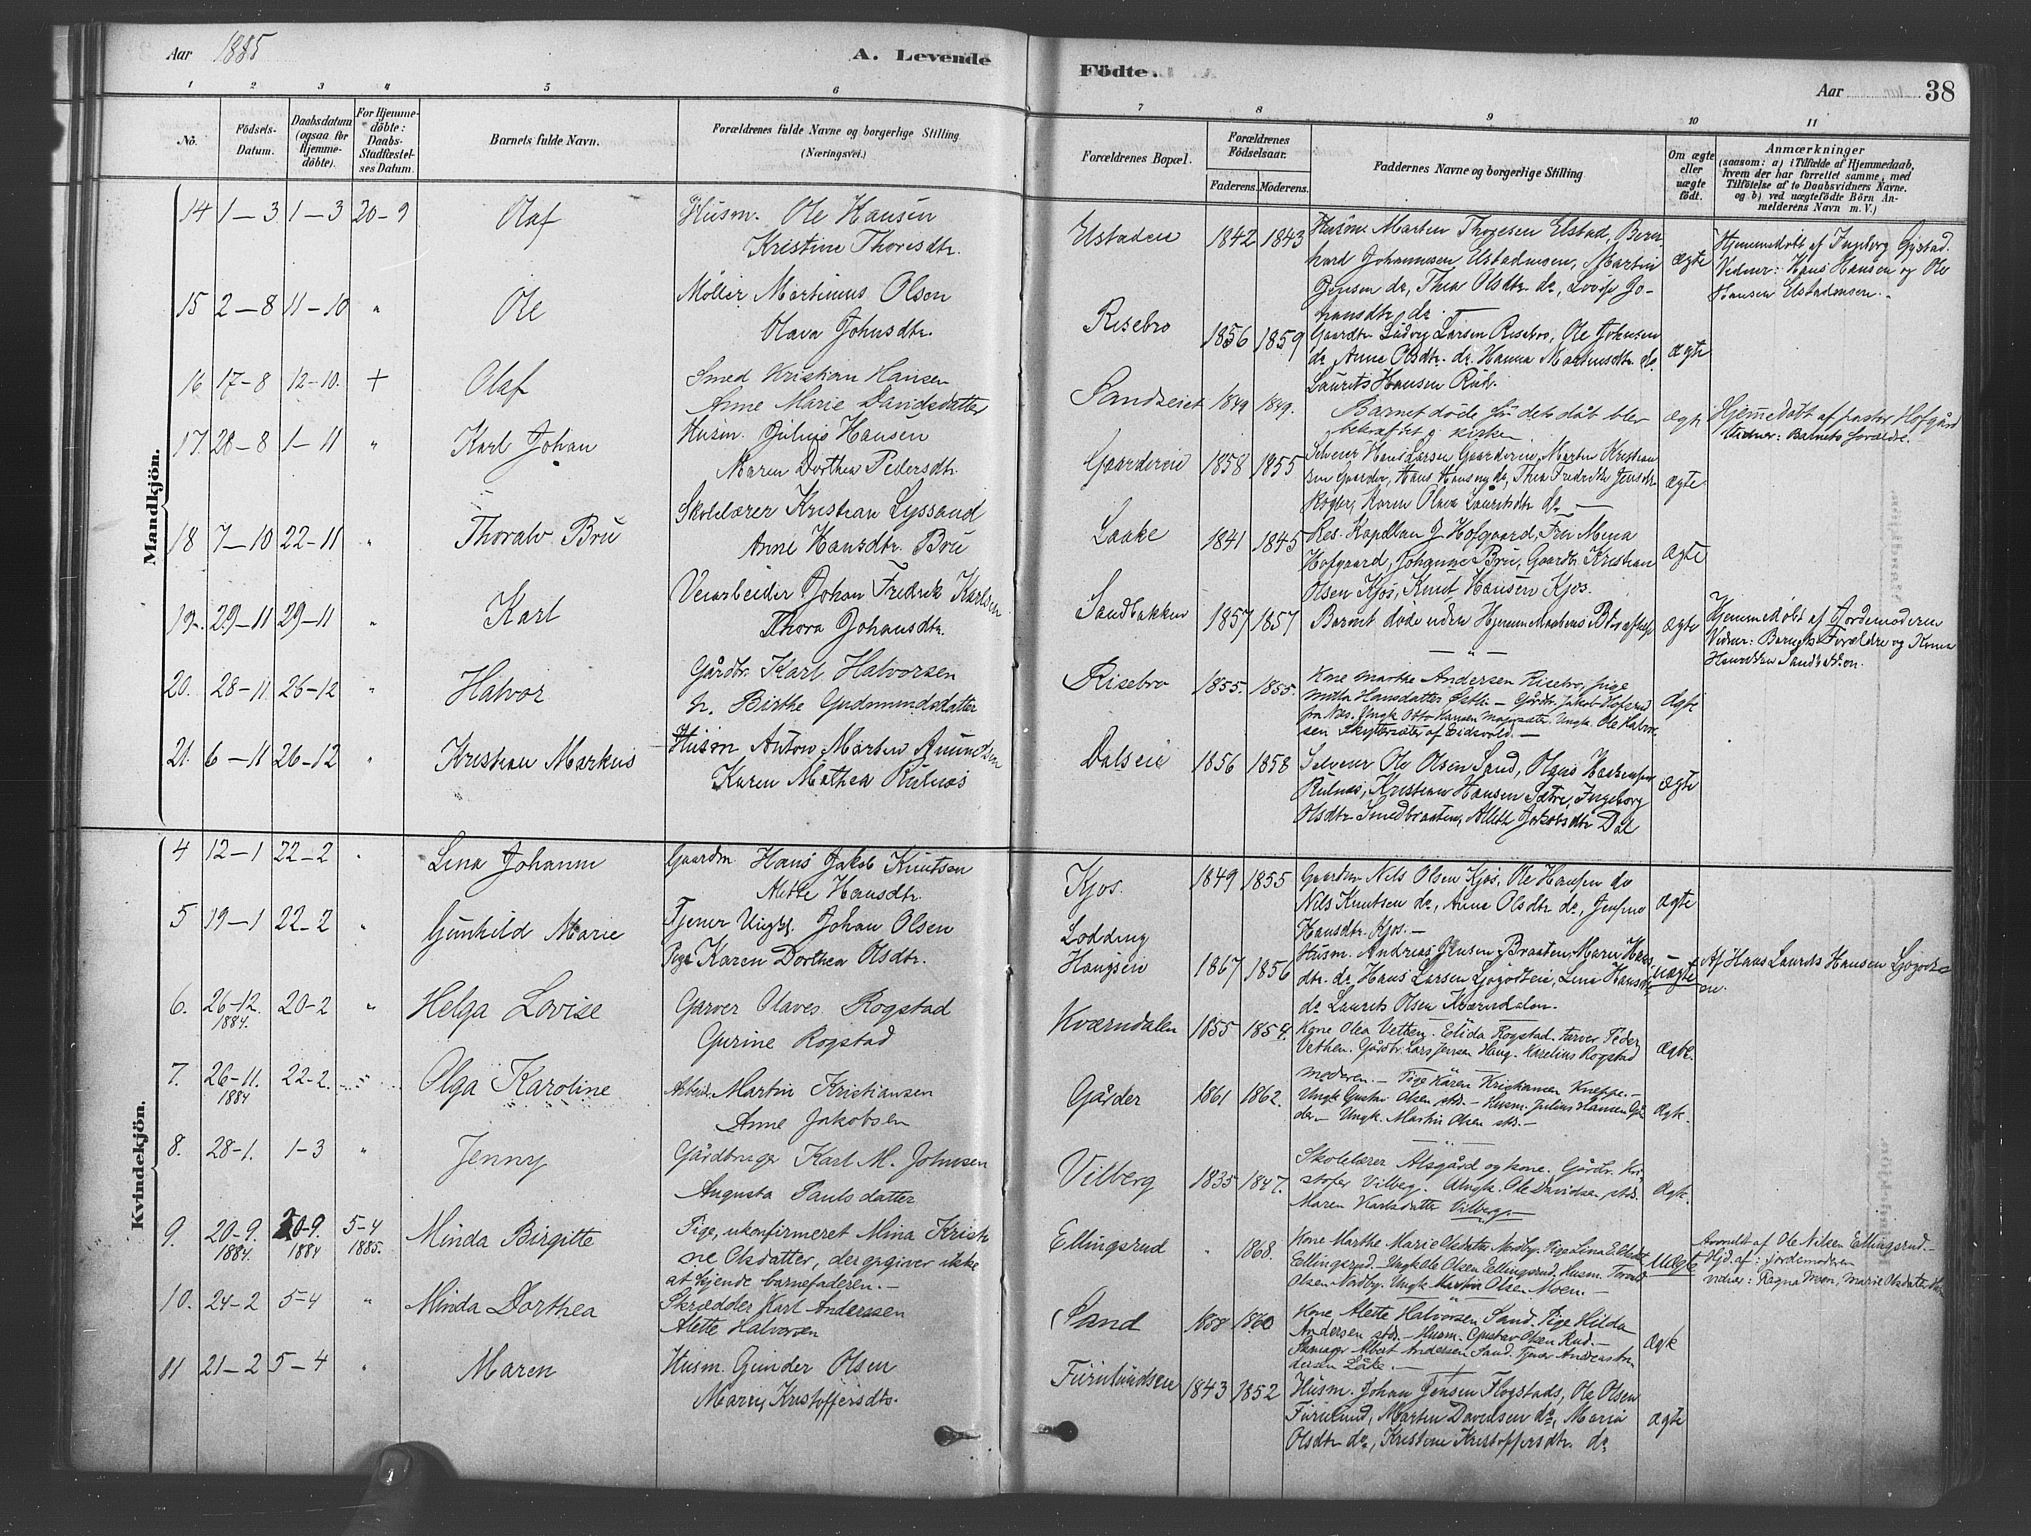 Aar 1885
A. Levende
Födte.
Aar
38
1 2 3 4 5 6 7 8 9 10 11
No.
Födsels-Datum.
Daabsdatum (ogsaa for Hjemme-döbte).
For Hjemme-döbte: Daabs-Stadfæstel-ses Datum.
Barnets fulde Navn.
Forældrenes fulde Navne og borgerlige Stilling.
(Næringsvei.)
Forældrenes Bopæl.
Forældrenes Födselsaar.
Faderens. Moderens.
Faddernes Navne og borgerlige Stilling
Om ægte eller uægte födt.
Anmærkninger
(saasom: a) i Tilfælde af Hjemmedaab,
hvem der har forrettet samme, med
Tilföielse af to Daabsvidners Navne.
og b) ved uægtefödte Börn An-
melderens Navn m. V.)
Mandkjön.
14 1–3 1–3 20–9 Olaf
Husm. Ole Hansen
Kristine Thoresdtr.
Ustadeie 1842 1843
Martin Thogesen Elstad, Bern
hard Johannesen Ustadeiesen, Martin
Jensen do, Thea Olsdtr do, Lovise Jo-
hansdtr do.
ægte
Hjemmedøbt af Ingeborg Gystad.
Vidner: Hans Hansen og Ole
Hansen Ustadeiesen.
15 2–8 11–10 " Ole
Møller Martinus Olsen
Olava Johnsdtr.
Risebro 1856 1859
Gaardbr Ludvig Larsen Risebro, Ole Johnsen
do, Anne Olsdtr. do, Hanna Martinusdtr. do,
Laurits Hansen Rud.
ægte
16 17–8 12–10. + Olaf
Smed Kristian Hansen
Anne Marie Davidsdatter
Sandseiet 1849 1849.
Barnet døde før dets dåb blev
bekræftet i kirken
ægte
Hjemmedøbt af pastor Hofgård
Vidner: Barnets forældre.
17. 28–8 1–11 " Karl Johan
Husm. Julius Hansen
Maren Dorthea Pedersdtr.
Gaardereie 1858 1855
Selveier Hans Larsen Gaardereie, Martin Kristian
sen Gaarder, Hans Hansen do, Thea Fredrikke Jensdtr
Karen Olava Lauritsdtr do.
ægte
18 7–10 22–11 " Thoralv Bru
Skolelærer Kristian Lyssand
Anne Hansdtr. Bru
Laake 1841 1845
Res. Kapellan J. Hofgaard, Fru Mena
Hofgaard, Johanne Bru, Gaardbr Kristian
Olsen Kjos, Knut Hansen Kjos.
ægte
19. 29–11 29–11 " Karl
Veiarbeider Johan Fredrik Karlsen
Thora Johansdtr.
Sandbakken 1857 1857
Barnet døde
ægte
Hjemmedøbt af Jordemoderen
Vidner: Barnets Forældre og Kona
20. 28–11. 26–12 " Halvor
Gårdbr. Karl Halvorsen
h. Birthe Gudmundsdatter
Risebro 1855. 1855.
Kone Marthe Andersen Risebro, pige
Hansdatter Gårdbr. Jakob
fra Næs. Ungk. Otto Hansen Ungk. Ole Halvor
sen af Eidsvold.
Ægte
21. 6–11 26–12 " Kristian Markus
Husm Anton Martin Amundsen
Karen Mathea Rulnæs
Dalseie 1856 1858
Selveier Ole Olsen Sand, Hans
Rulnæs, Kristian Hansen Sætre, Ingeborg
Olsdtr Smedbraaten, Aleth Jakobsdtr Dal
ægte
Kvindekjön.
4 12–1 22–2 " Lina Johanne
Gaardm Hans Jakob Knutsen
Alette Hansdtr.
Kjos. 1849 1855
Gaardm Nils Olsen Kjos, Ole Hansen do
Nils Knutsen do, Anne Olsdtr do,
Hansdtr. Kjos.
ægte
5 19–1 22–2 " Gunhild Marie
Tjener Ungk. Johan Olsen
Pige Karen Dorthea Olsdtr.
Lodding
Haugseie 1867 1856
Husm. Andreas Jensen Braaten, Maren Hans
dtr. do, Hans Larsen Lina Hansdtr
do Laurits Olsen Kværndalen.
uægte
Af Hans Laurits Hansen
6. 26–12. 1884. 20–2 " Helga Lovise
Garver Olaves Rogstad
Gurine Rogstad
Kværndalen 1855 1854.
Kone Olea Vetten. Elida Rogstad. Farver Peder
Vethen. Gårdbr. Lars Jensen Haug. Karelius Rogstad
Ægte.
7. 26–11. 1884 22–2. " Olga Karoline
Arbeid. Martin Kristiansen
Anne Jakobsen
Gårder 1861 1862.
moderen. – Pige Karen Kristiansen Kneppe. –
Ungk Gustav Olsen stds. – Husm. Julius Hansen Går
der. – Ungk. Martin Olsen stds. –
Ægte.
8. 28–1. 1–3 " Jenny
Gårdbruger Karl M. Johnsen
Augusta Paulsdatter
Vilberg 1835 1847.
Skolelærer Alsgård og kone. Gårdbr. Kri
stofer Vilberg. Ungk. Ole Davidsen stds.
Maren Karlsdatter Vilberg. –
Ægte.
9. 20–9. 1884. 20–9. 1884 5–4 1885. Minda Birgitte
Pige, ukonfirmeret Mina Kristi
ne Olsdatter, der opgiver ikke
at kjende barnefaderen. –
Ellingsrud " 1868.
Kone Marthe Marie Olsdatter Nordby. Pige Lina
Ellingsrud – Ungk Ole Olsen Ellingsrud, Husm.
Olsen Nordby. Ungk. Martin Olsen Moen. –
Uægte
Anmeldt af Ole Nilsen Ellingsrud. –
Hjd. af: jordemoderen
Vidner: Ragna Moen, Marie Olsdatter
10. 24–2 5–4 " Minda Dorthea
Skrædder Karl Anderssen
Alette Halvorsen
Sand 1858 1860
Kone Alette Halvorsen Sand. Pige Hilda
Andersen stds. – Husm. Gustav Olsen Rud. –
Skomager Albert Andersen Sand. Tjener
dersen Låke. –
Ægte
11 21–2 5–4 " Maren
Husm. Gunder Olsen
Marie Kristoffersdtr.
Furulundseie 1843 1852
Husm. Johan Jensen Flogstads, Ole Olsen
Furulund, Martin Davidsen do, Maria
Olsdtr do, Kristine Kristoffersdtr. do
ægte